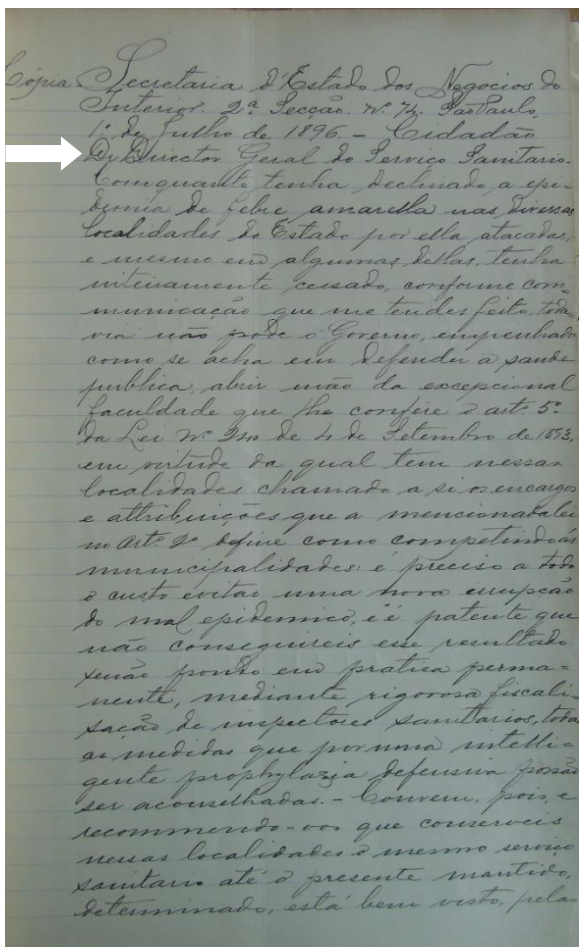 Cópia. Secretaria d'Estado dos Negocios do
Interior. 2ª Secção. Nº 74. São Paulo,
1º de Julho de 1896. – Cidadão
Dr Director Geral do Serviço Sanitario.
Comquanto tenha declinado a epi-
demia de febre amarella nas diversas
localidades do Estado por ella atacadas,
e mesmo em algumas dellas, tenha
inteiramente cessado, conforme com-
municação que me tendes feito, toda-
via não póde o Governo, empenhado
como se acha em defender a saude
publica, abrir mão da excepcional
faculdade que lhe confere o artº 5º
da Lei Nº 240 de 4 de Setembro de 1893,
em virtude da qual tem nessas
localidades chamado a si os encargos
e attribuições que a mencionada lei
no Artº 2º define como competindo as
municipalidades: é preciso a todo
o custo evitar uma nova irrupção
do mal epidemico, e é patente que
não conseguireis esse resultado
senão pondo em pratica perma=
nente, mediante rigorosa fiscali-
sação de inspectores sanitarios, todas
as medidas que por uma intelli=
gente prophylaxia defensiva possão
ser aconselhadas. – Convem, pois, e
recommendo-vos que conserveis
nessas localidades o mesmo serviço
sanitario até o presente mantido,
determinado, está bem visto, pelas